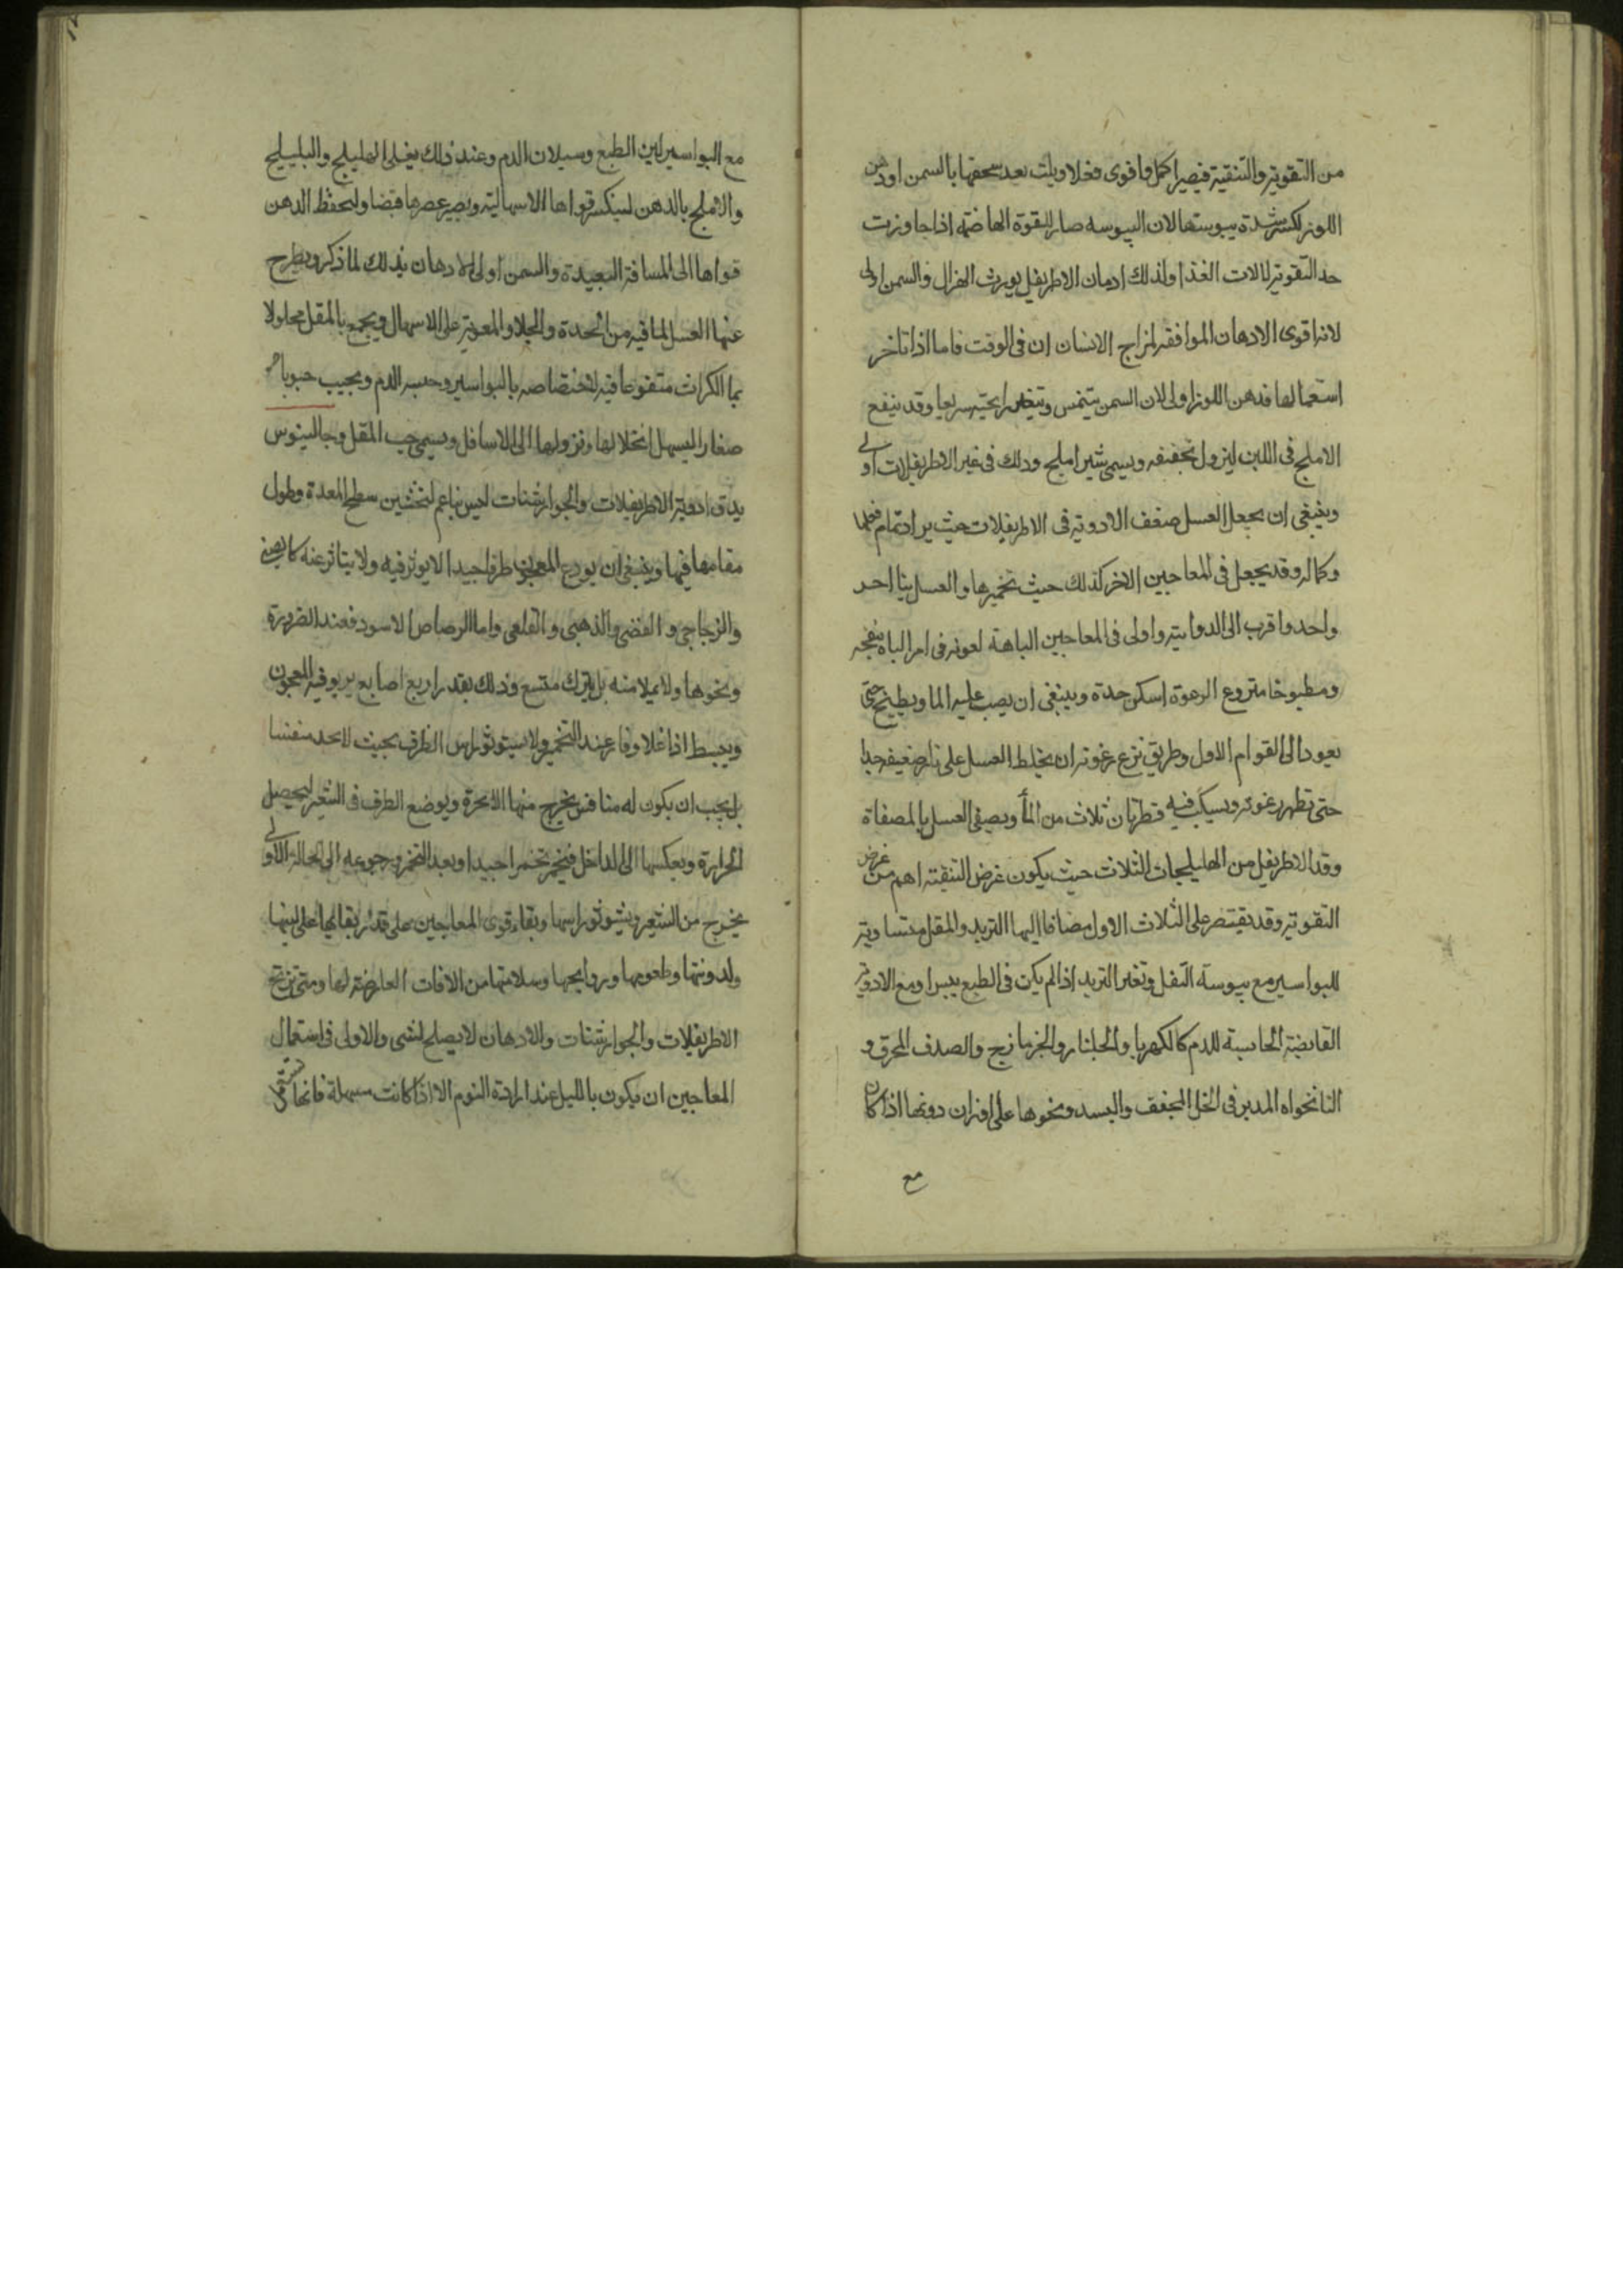 من التقوية والتنقية فيصير اكمل واقوى فعلا ويلت بعد سحقها بالسمن او دهن
اللوز لكسر شدة يبوستها لان اليبوسه ضار للقوة الهاضمة اذا جاوزت
حد التقوية لالات الغذا ولذلك ادمان الاطريفل يورث الهزال والسمن اولى
لانه اقوى الادهان الموافقه لمزاج الانسان ان فى الوقت فاما اذا تاخر
استعمالها فدهن اللوز اولى لان السمن يتخمس وتتغير رايحته سريعا وقد ينقع
الاملج فى اللبن ليزول تجفيفه ويسمى شير املج وذلك فى غير الاطريفلات اولى
وينبغى ان يجعل العسل ضعف الادوية فى الاطريفلات حيث يراد تمام فعلها
وكماله وقد يجعل فى المعاجين الاخر كذلك حيث تخميرها والعسل
واحد واقرب الى الدوائية واولى فى المعاجين الباهية لعونه فى امر الباه بنفخه
ومطبوخا منزوع الرغوة اسكن حدة وينبغى ان يصب عليه الما ويطبخ حتى
يعود الى القوام الاول وطريق نزع رغوته ان يخلط العسل على نار ضعيفه جدا
حتى تظهر رغوته ويسكب فيه قطرتان ثلاث من الماء ويصفى العسل بالمصفاة
وقد الاطريفل من الهليلجات الثلاث حيث يكون غرض التنقية اهم من غرض
التقوية وقد يقتصر على الثلاث الاول مضافا اليها التربد والمقل متساوية
للبواسير مع يبوسة الثفل وتغير التربد اذا لم يكن فى الطبع يبس او مع الادوية
القابضة الحابسة للدم كالكهربا والجلنار والجزمازج والصدف المحرق و
النانخواه المدبر فى الخل المجفف والبسد ونحوها على اوزان دونها اذا كان
مع
مع البواسير لين الطبع وسيلان الدم وعند ذلك يغلى الهليلج والبليلج
والاملج بالدهن لينكسر قواها الاسهالية ويصير عصرها قبضا وليحفظ الدهن
قواها الى المسافة البعيدة والسمن اولى الادهان بذلك لما ذكر ويطرح
عنها العسل لما فيه من الحدة والجلاء والمعونة على الاسهال ويجمع بالمقل محلولا
بما الكراث منقوعا فيه لاختصاصه بالبواسير وحبسه الدم ويحبب حبوبا
صغارا ليسهل انحلالها ونزولها الى الاسافل ويسمى حب المقل وجالينوس
يدق ادوية الاطريفلات والجوارشنات ليس بناعم لتخشين سطح المعدة وطول
مقامها فيها وينبغى ان يودع المعجون ظرفا جيدا لا يوثر فيه ولا يتاثر عنه كالصينى
والزجاجى و الفضى والذهبى والقلعى واما الرصاص الاسود فعند الضرورة
ونحوها ولا يملا منه بل يترك متسع وذلك بقدر اربع اصابع يربو فيه المعجون
وينبسط اذا غلا وفار عند التخمير ولا يستوثق راس الظرف بحيث لا يجد منفسا
بل يجب ان يكون له منافس يخرج منها الابخرة ويوضع الظرف فى الشعير ليحصل
الحرارة ويعكسها الى الداخل فيخمر تخمرا جيدا وبعد التخمر ورجوعه الى الحالة الاولى
يخرج من الشعير ويشوثق راسها وبقاء قوى المعاجين على قدر بقائها على لينها
ولدونتها وطعومها وروايحها وسلامتها من الافات العارضة لها ومتى تزنخ
الاطريفلات والجوارشنات والادهان لا يصلح لشى والاولى فى استعمال
المعاجين ان يكون بالليل عند ارادة النوم الا اذا كانت مسهلة فانها